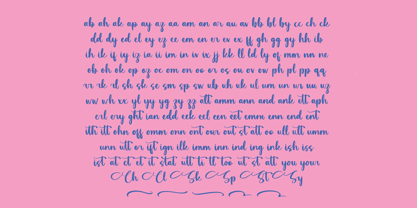 ab ah ak ap ay az aa am an ar au av bb bl by ch ck
dd dy ed el ey ez ee em en er ev ex ff gh gg gy hh
ih ik if iy iz ia ii im in iv ix jj kk ll ld ly of mm nn ne
ob oh ok op oz oc om on oo or os ou ov ow ph pl pp qq
rr rk rl sh sk se sm sp sw ub uh uk ul um un ur uu uz
ww wh xx yl yy yg zy zz att amm ann and ank itt aph
erl ery ght ian edd eek ecl een eet emm enn end ent
ith itt ohn off omm onn ont our out st att oo ull utt umm
unn utt or ift ign ille imm inn ind ing ink ish iss
ist at et ct it stat utt ti tt too ut st att you your
Ch Cl Sk Sp St Sy